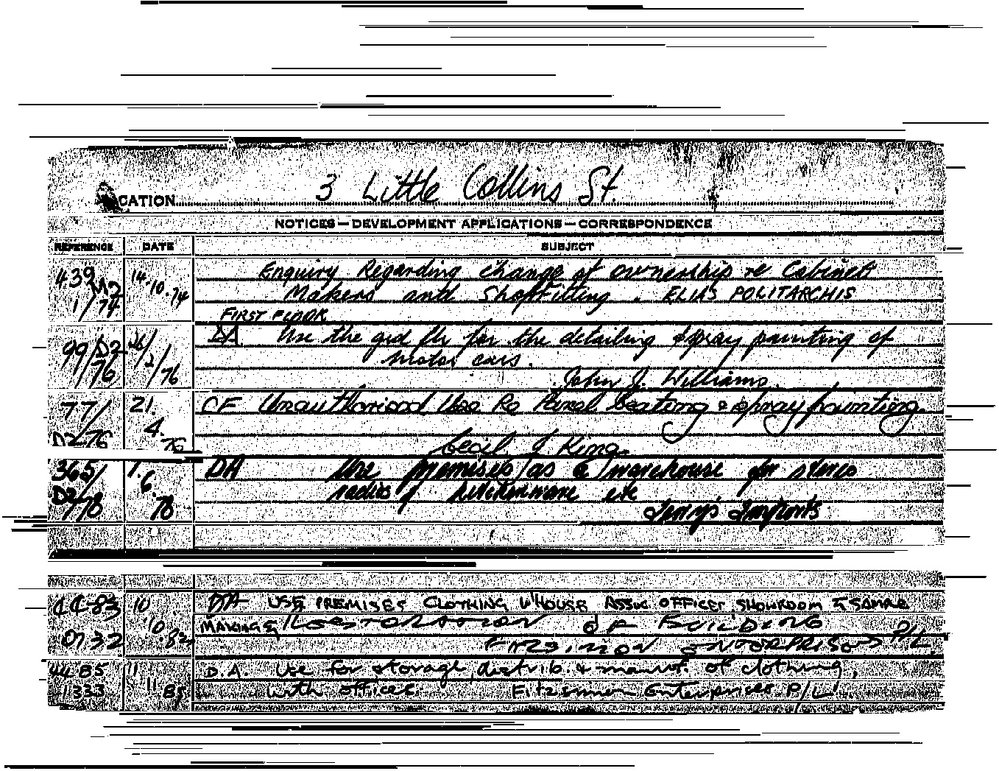 CATION 3 Little Collins St.
NOTICES — DEVELOPMENT APPLICATIONS — CORRESPONDENCE
REFERENCE DATE SUBJECT
439/M2 1/74 14.10.74 Enquiry Regarding change of ownership re Cabinet
Makers and Shopfitting. ELIAS POLITARCHIS
FIRST FLOOR
99/D2 76 2/76 DA. Use the gnd flr for the detailing spray painting of
motor cars.
John J. Williams.
77/ D2-76 21.4.76 CF Unauthorised Use Re Panel Beating & spray painting
Cecil J King.
365/ D2/78 1.6.78 DA Use premises as a warehouse for stereo
radios, kitchenware etc
Imports
44-83 0732 10 10 DA USE PREMISES CLOTHING W'HOUSE ASSOC OFFICES SHOWROOM & SAMPLE
MAKING & RESTORATION OF BUILDING
ENTERPRISES P/L.
44 85 1333 11 11 85 D.A Use for storage, distrib. & manuf. of clothing,
with offices. Fitzsimon Enterprises P/L